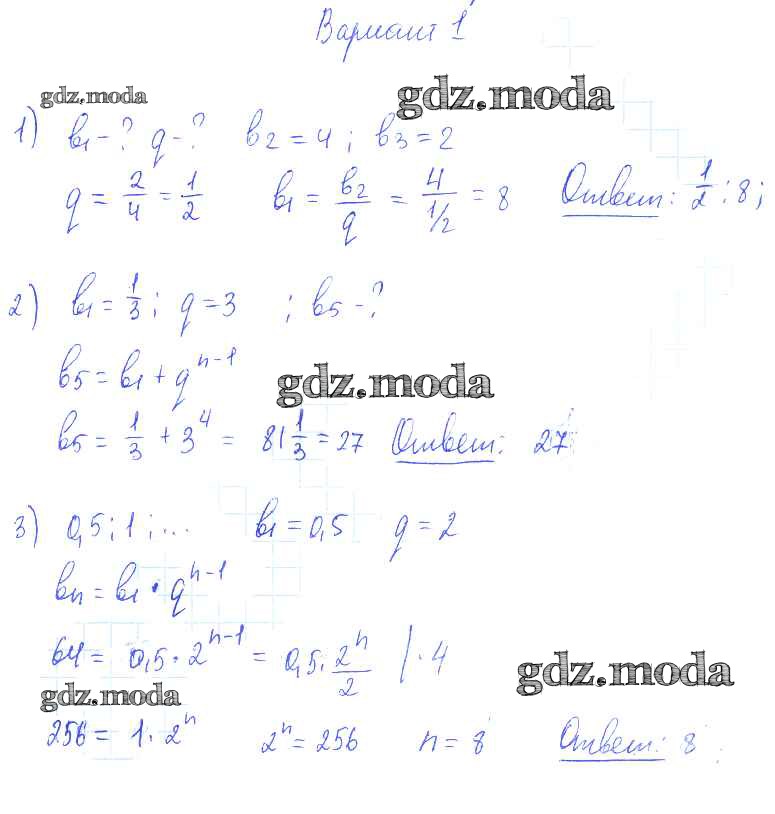 Вариант 1
gdz.moda gdz.moda
1) b₁ - ? q - ? b₂ = 4 ; b₃ = 2
q = 2/4 = 1/2 b₁ = b₂/q = 4/(1/2) = 8 Ответ: 1/2 ; 8 ;
2) b₁ = 1/3 ; q = 3 ; b₅ - ?
b₅ = b₁ + q^(n-1)
gdz.moda
b₅ = 1/3 + 3^4 = 81 1/3 = 27 Ответ: 27
3) 0,5 ; 1 ; ... b₁ = 0,5 q = 2
bₙ = b₁ · q^(n-1)
64 = 0,5 · 2^(n-1) = 0,5 · 2^n/2 | · 4
gdz.moda gdz.moda
256 = 1 · 2^n 2^n = 256 n = 8 Ответ: 8